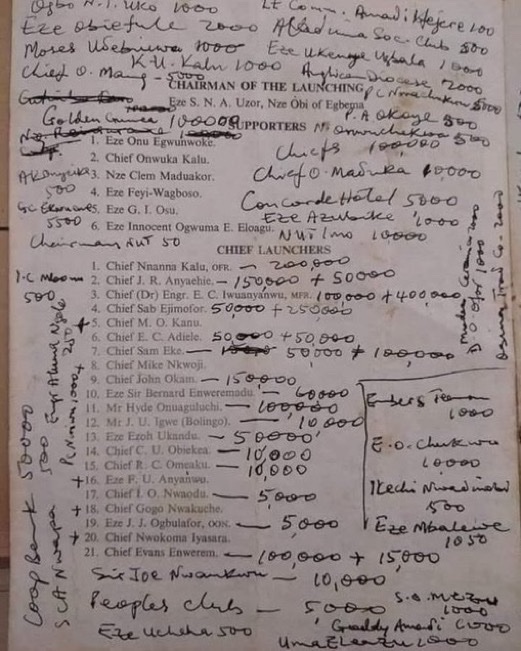 Ogbo N.I. Uko 1000 Lt Comm. Amadi Ikejere 100
Eze Obiefule 2000 Afaduma Soc. Club 500
Moses Udebniwa 1000 Eze Ukenye Ugbala 1000
Chief O. Mang - 5000 K.U. Kalu 1000 Anglican Diocese 2000
CHAIRMAN OF THE LAUNCHING
Eze S. N. A. Uzor, Nze Obi of Egbema
P C Nwachukwu 5000
Golden Guinea 100000
P.A Okoye 500
SUPPORTERS
500
1. Eze Onu Egwunwoke.
Chiefs 100000
2. Chief Onwuka Kalu.
3. Nze Clem Maduakor.
Chief O. Maduka 10,000
500
4. Eze Feyi-Wagboso.
Concorde Hotel 5000
5. Eze G. I. Osu.
5500
Eze Azubuike 1000
6. Eze Innocent Ogwuma E. Eloagu.
NUT Imo 10000
Chairman NUT 50
CHIEF LAUNCHERS
1. Chief Nnanna Kalu, OFR. - 200,000
2. Chief J. R. Anyaehie. - 150,000 + 50000
500
3. Chief (Dr) Engr. E. C. Iwuanyanwu, MFR. 100,000 + 400,000
4. Chief Sab Ejimofor. 50000 + 250000
+ 5. Chief M. O. Kanu.
6. Chief E. C. Adiele. 50000 + 50,000
7. Chief Sam Eke. - 50000 + 100000
8. Chief Mike Nkwoji.
9. Chief John Okam. - 150000
10. Eze Sir Bernard Enweremadu. - 60000
11. Mr Hyde Onuaguluchi. - 100,000
12. Mr J. U. Igwe (Bolingo). - 10,000
13. Eze Ezoh Ukandu. - 50000
14. Chief C. U. Obiekea. - 10,000
15. Chief R. C. Omeaku. - 10,000
+ 16. Eze F. U. Anyanwu.
17. Chief I. O. Nwaodu. - 5,000
+ 18. Chief Gogo Nwakuche.
19. Eze J. J. Ogbulafor, OON. - 5,000
+ 20. Chief Nwokoma Iyasara.
21. Chief Evans Enwerem. - 100,000 + 15,000
1000
E.O. Chukwu
10000
Ikechi Nwadinobi
500
Eze Mbalewe
1050
Coop Bank 50000
SCA Nwapa 500
Sir Joe Nwankwu - 10,000
Peoples club - 5000
1000
Eze Ucheha 500
Goddy Amadi 1000
Uma Eleazu 2000